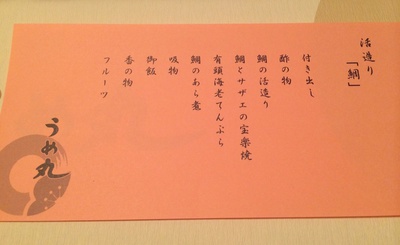 活造り
「鯛」
付き出し
酢の物
鯛の活造り
鯛とサザエの宝楽焼
有頭海老てんぷら
鯛のあら煮
吸物
御飯
香の物
フルーツ
うめ丸